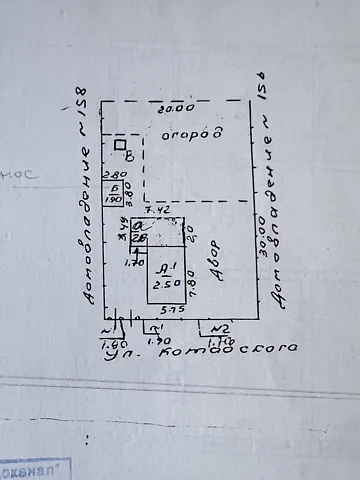 20.00
огород
В
Домовладение №158
Домовладение №156
нос
2.80
Б
1.90
3.80
7.42
3.44
2.0
1.70
А1
2.50
7.80
Двор
30.00
5.75
№1
1.60
1.90
№2
1.70
ул. Котовского
оканал"